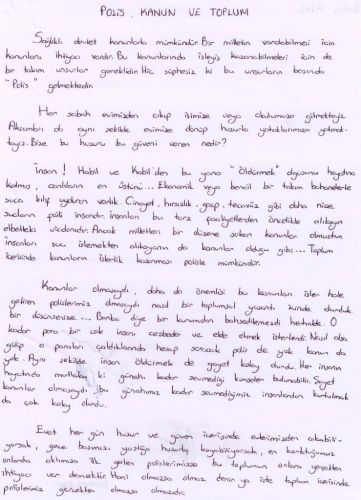 POLİS, KANUN VE TOPLUM
Sağlıklı devlet kanunlarla mümkündür. Bir milletin varolabilmesi için
kanunlara ihtiyacı vardır. Bu kanunlarında işleyiş kazanabilmeleri için de
bir takım unsurlar gereklidir. Hiç şüphesiz ki bu unsurların başında
"Polis" gelmektedir.
Her sabah evimizden çıkıp işimize veya okulumuza gitmekteyiz.
Akşamları da aynı şekilde evimize dönüp huzurla yataklarımıza yatmak-
tayız. Bize bu huzuru bu güveni veren nedir?
İnsan! Habil ve Kabil'den bu yana "öldürmek" olgusunu hayatına
katmış, canlıların en üstünü... Ekonomik veya bencil bir takım bahanelerle
suça kılıf uyduran varlık. Cinayet, hırsızlık, gasp, tecavüz gibi daha nice
suçların faili insandır. İnsanları bu tarz faaliyetlerden öncelikle alıkoyan
elbetteki vicdanıdır. Ancak milletleri bir düzene sokan kanunlar olmuştur
insanları suç işlemekten alıkoyanın da kanunlar olduğu gibi... Toplum
içerisinde kanunların işlerlik kazanması polisle mümkündür.
Kanunlar olmasaydı, daha da önemlisi bu kanunları işler hale
getiren polislerimiz olmasaydı nasıl bir toplumsal yaşantı içinde olurduk
bir düşünsenize... Banka diye bir kurumdan bahsedilemezdi herhalde. O
kadar para bir çok insanı cezbeder ve elde etmek isterlerdi. Nasıl olsa
gidip o paraları çaldıklarında hesap soracak polis de yok kanun da
yok. Aynı şekilde insan öldürmek de gayet kolay olurdu. Her insanın
hayatında mutlaka ki günahı kadar sevmediği kimseler bulunabilir. Şayet
kanunlar olmasaydı bu günahımız kadar sevmediğimiz insanlardan kurtulmak
da çok kolay olurdu.
Evet her gün huzur ve güven içerisinde evlerimizden çıkabili-
yorsak, gece başımızı yastığa huzurla koyabiliyorsak, en korktuğumuz
anlarda aklımıza ilk gelen polislerimizse bu toplumun onlara gerçekten
ihtiyacı var demektir. Hani olmazsa olmaz denir ya işte toplum içerisinde
polislerimiz gerçekten olmazsa olmazıdır.